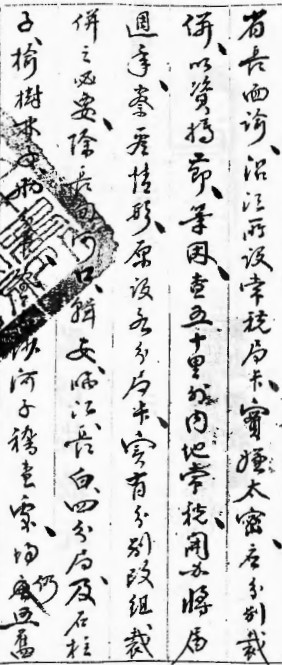 省長面諭、沿江所設常稅局卡、實嫌太密、應分別裁
併、以資撙節、等因、查五十里外內地常稅、開办將屆
週年、察看情形、原設各分局卡、實有分別改組裁
併之必要、除長甸河口、輯安、臨江、長白、四分局、及石柱
子、榆樹林、兩分卡、河子稽查處、均仍照舊